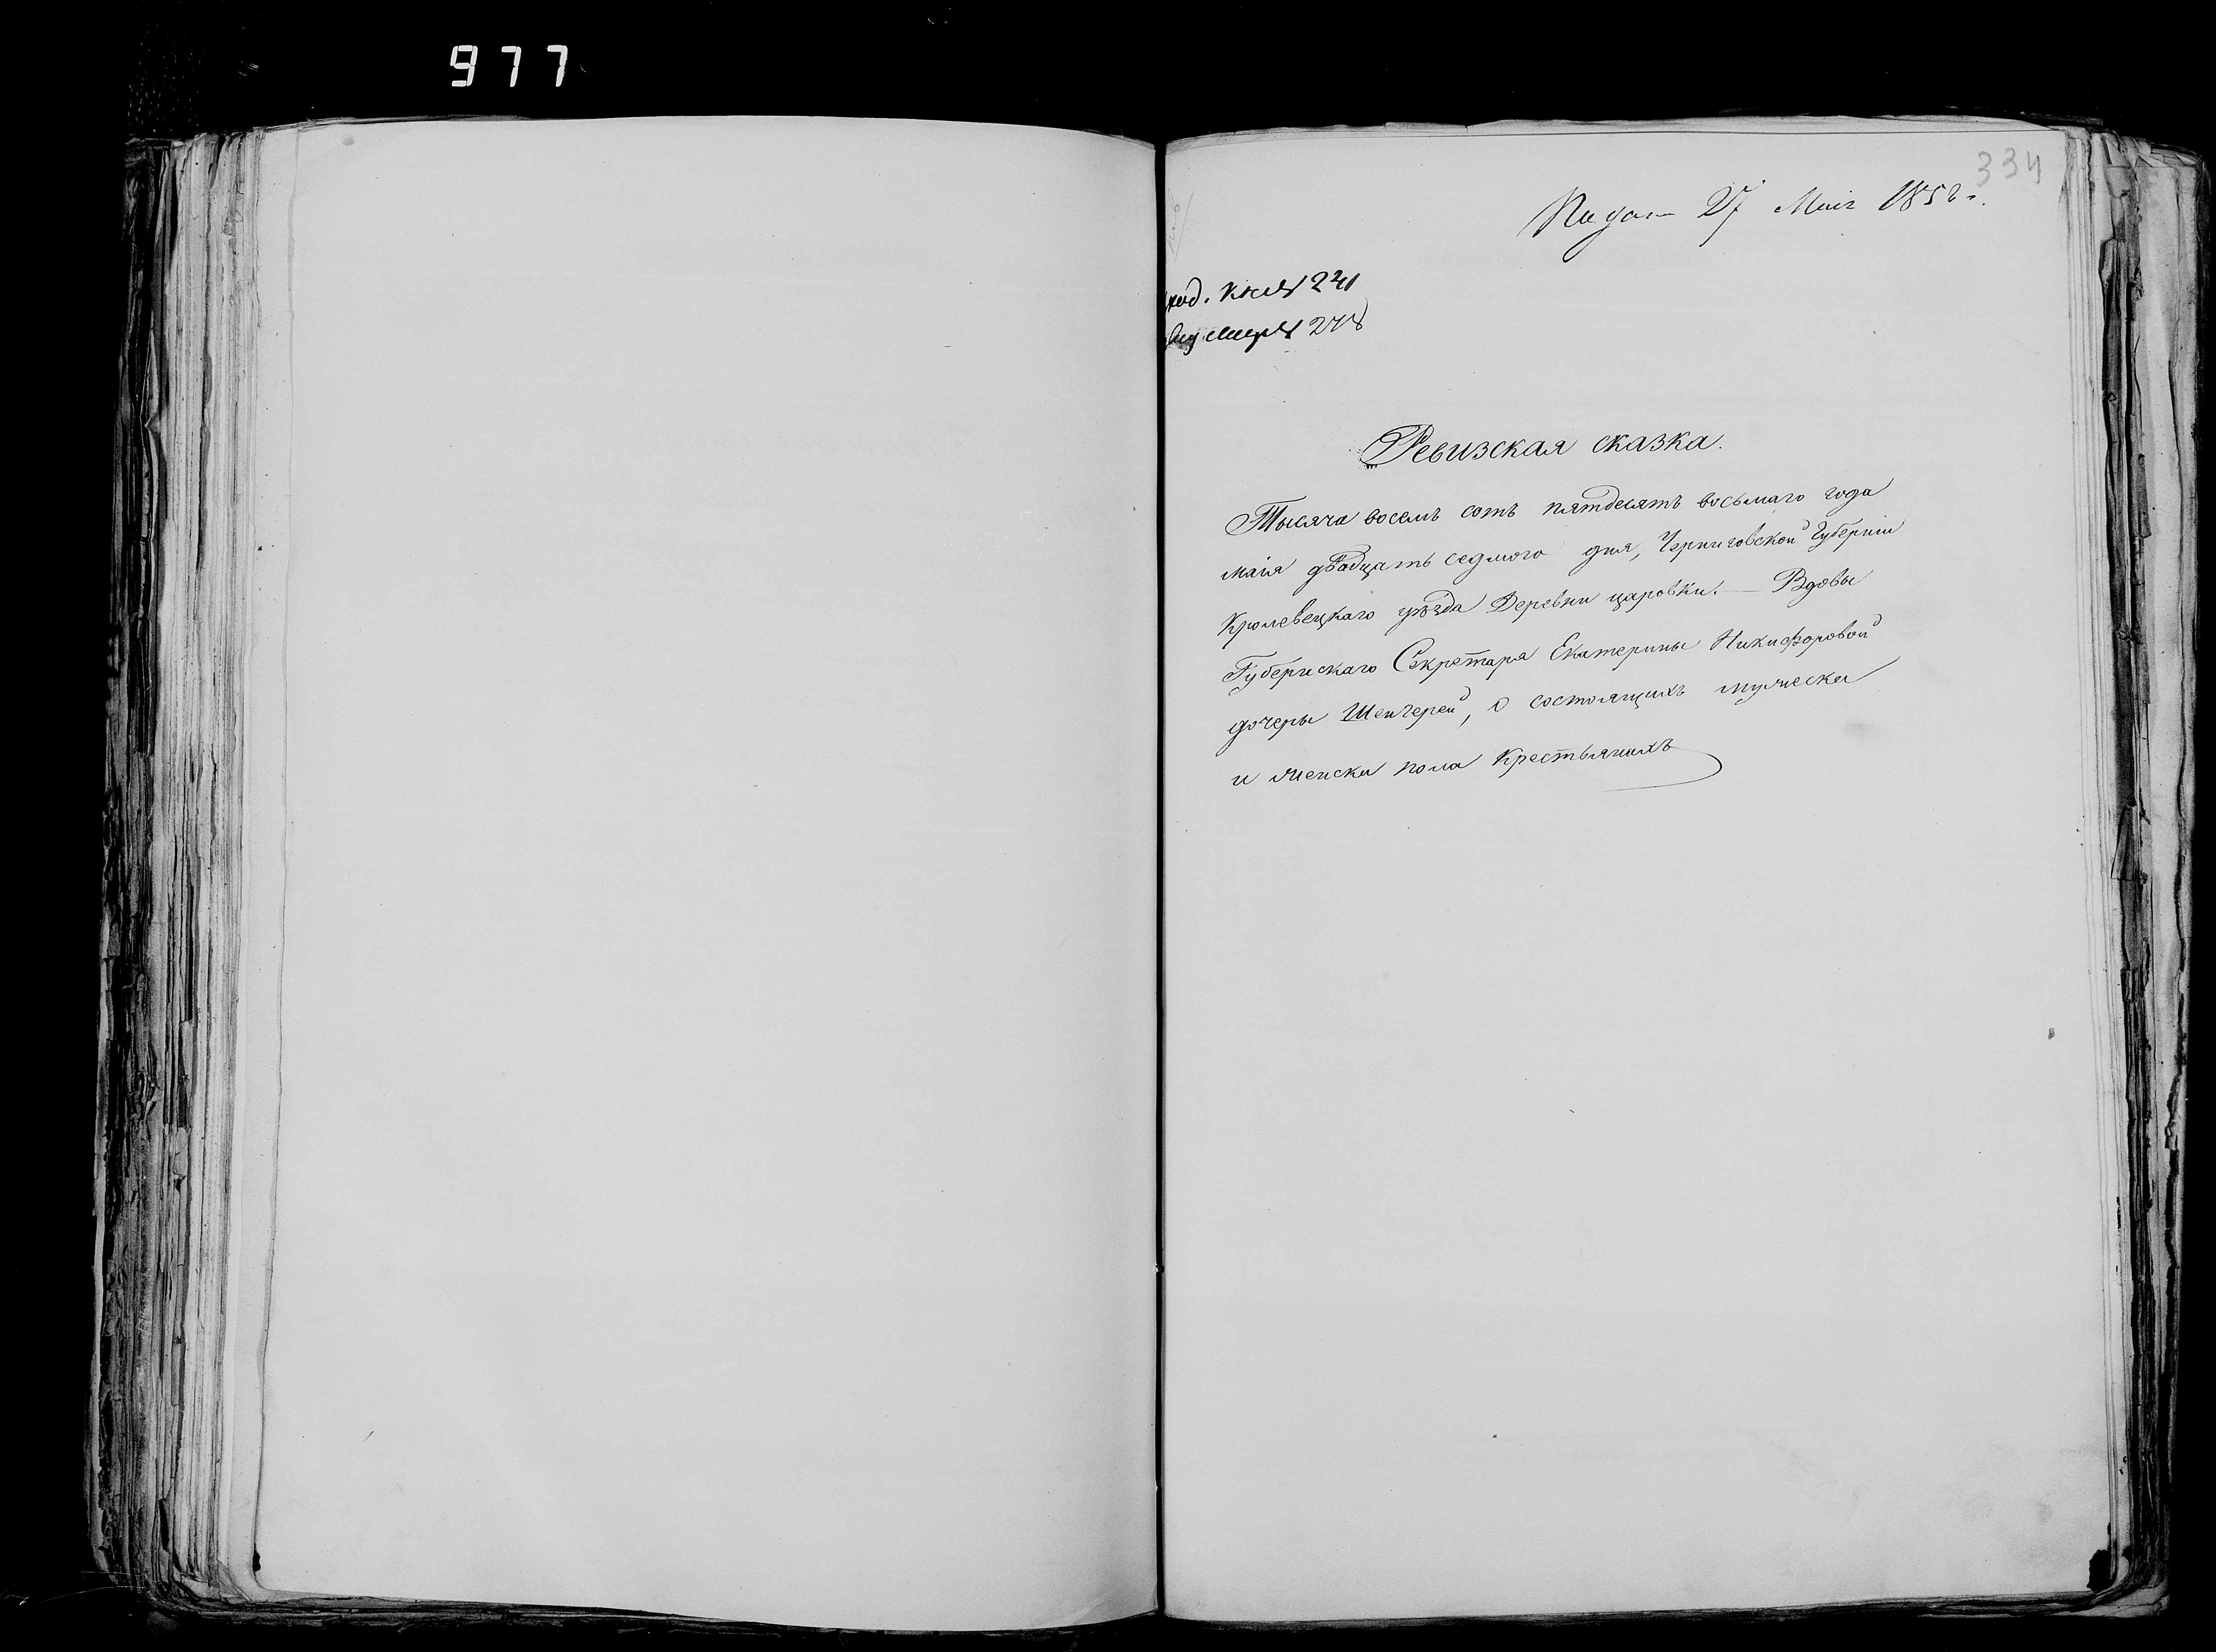 977
334
Подан 27 Маія 1858 г.
вход. кн. № 241
№ 278
Ревизская сказка.
Тысяча восемь сотъ пятдесятъ восьмаго года
маія двадцать седмого дня, Черниговской Губерніи
Кролевецкаго уѣзда Деревни царовки. — Вдовы
Губернскаго Секретаря Екатерины Никифоровой
дочеры Шенгерей, о состоящихъ мужеска
и женска пола Крестьянахъ